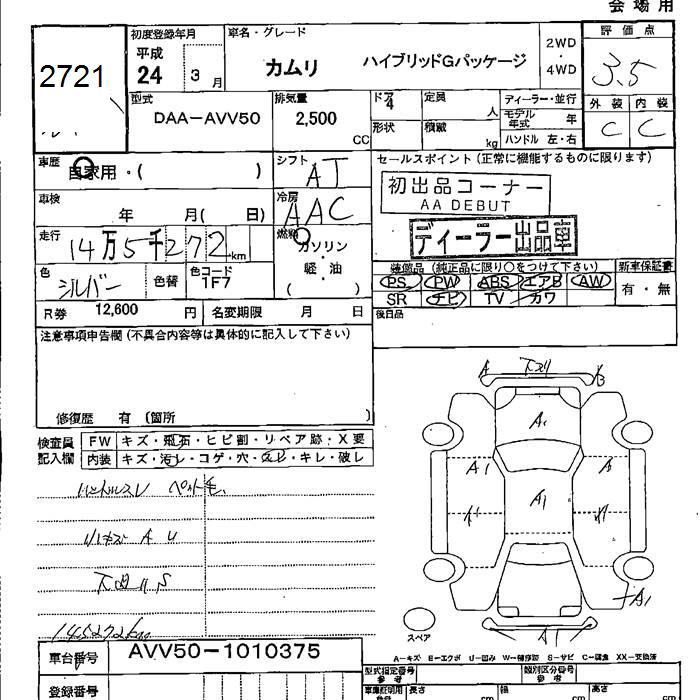 会場用
初度登録年月
車名・グレード
評価点
2721
平成
24 3 月
カムリ
ハイブリッドGパッケージ
2WD
・
4WD
3.5
型式
DAA-AVV50
排気量
2,500
CC
ドア
4
定員
人
ディーラー・並行
モデル年式 年
ハンドル 左・右
外装 内装
C C
形状
積載
kg
車歴
自家用・( )
シフト
AT
セールスポイント(正常に機能するものに限ります)
初出品コーナー
AA DEBUT
ディーラー出品車
車検
年 月( 日)
冷房
AAC
走行
14万5千272km
燃料
ガソリン
・
軽・油
( )
色
シルバー
色替
色コード
1F7
装備品(純正品に限り○をつけて下さい)
新車保証書
PS PW ABS エアB AW
SR ナビ TV カワ
有・無
R券 12,600 円
名変期限 月 日
後日品
注意事項申告欄(不具合内容等は具体的に記入して下さい)
修復歴 有(箇所 )
検査員
記入欄
FW キズ・飛石・ヒビ割・リペア跡・X要
内装 キズ・汚レ・コゲ・穴・スレ・キレ・破レ
ハンドルスレ ペット毛
A U
下回リS
145272km
A 下スリ B
A1
A1
A1
A
A1
A1
スペア
A-キズ E-エクボ U-凹み W-補修跡 S-サビ C-腐食 XX-交換済
車台番号 AVV50-1010375
登録番号
型式指定番号
参考
類別区分番号
参考
車庫証明用
長さ cm
幅 cm
高さ cm